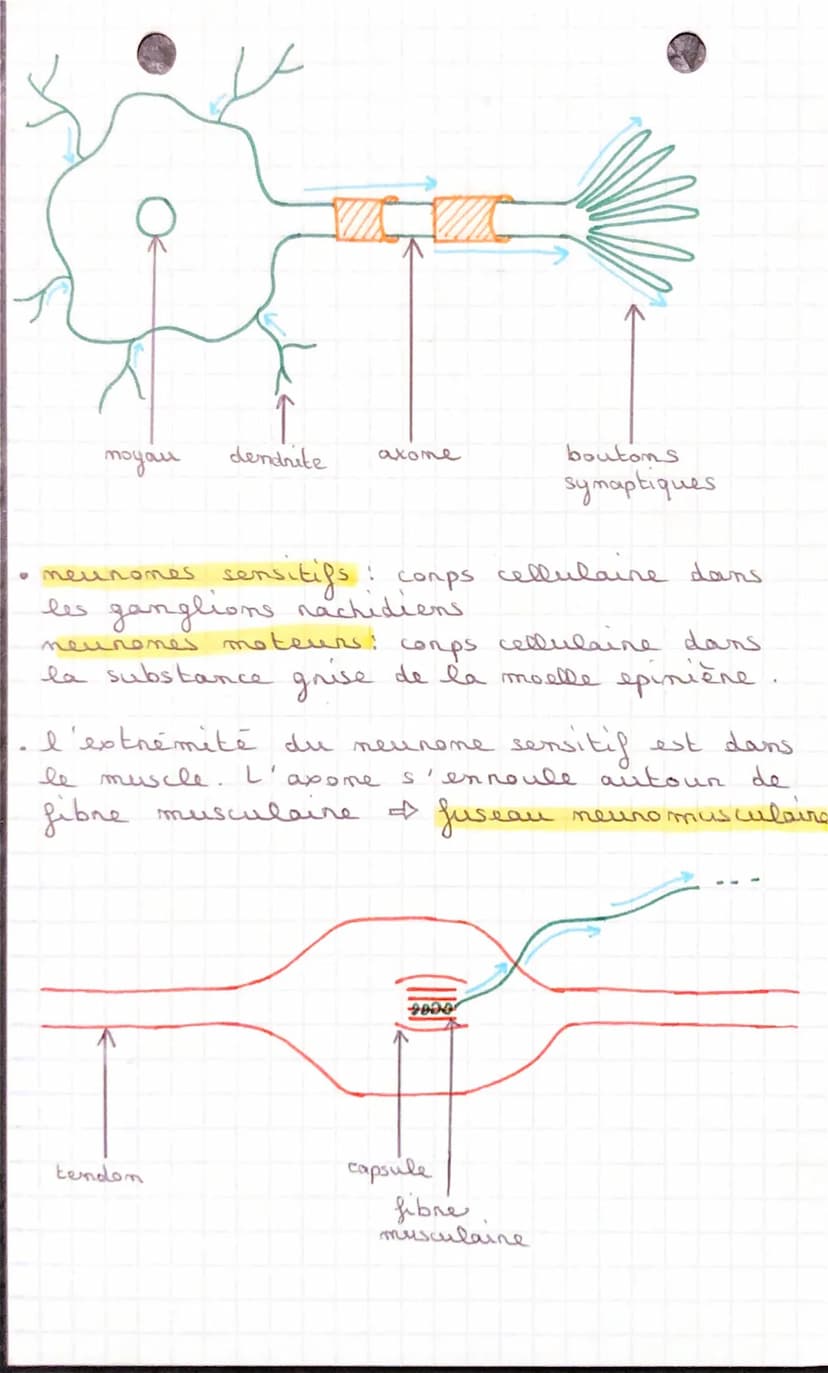 noyau dendrite axone boutons
synaptiques
• neurones sensitifs : corps cellulaire dans
les ganglions rachidiens
neurones moteurs : corps cellulaire dans
la substance grise de la moelle epinière.
. l'extrémité du neurone sensitif est dans
le muscle. L'axone s'enroule autour de
fibre musculaire ⇨ fuseau neuromusculaire
tendon capsule
fibre
musculaire